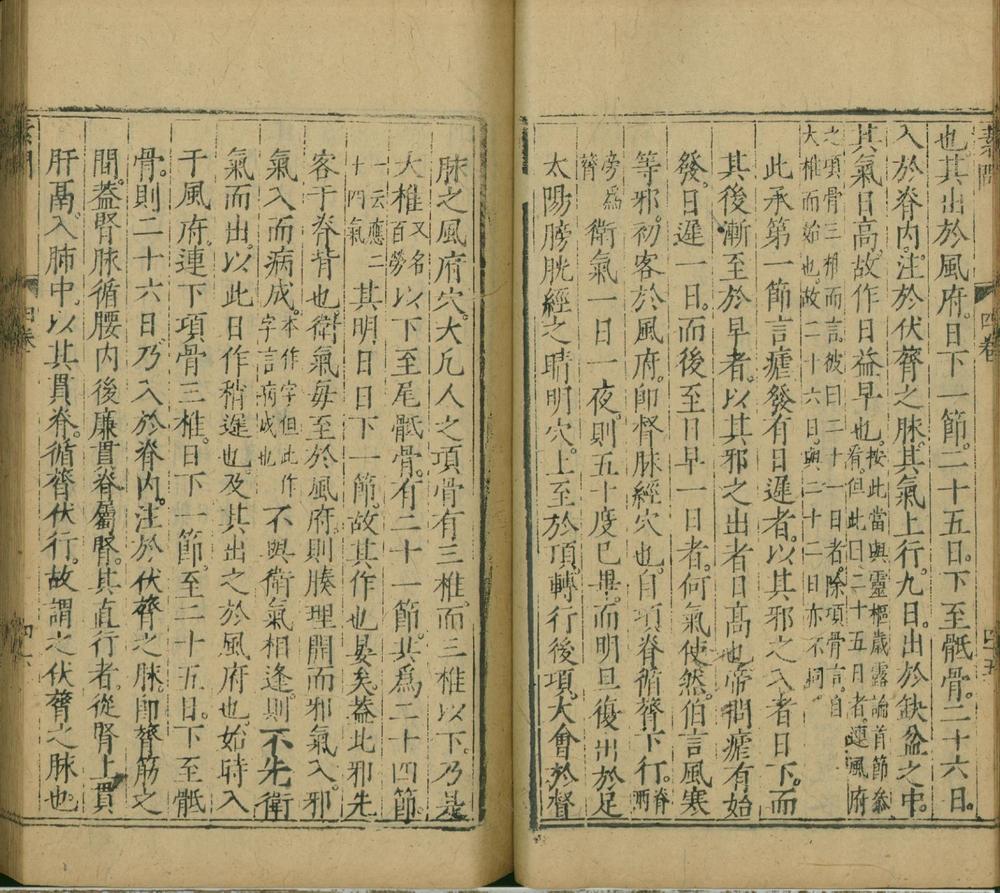 素問
四卷
四十五
也其出於風府日下一節二十五日下至骶骨二十六日
入於脊內注於伏膂之脉其氣上行九日出於缺盆之中
其氣日高故作日益早也按此當與靈樞歲露論首節叅看但此曰二十五日者連風府
之項骨三椎而言彼曰二十一日者除項骨言自大椎而始也故二十六日與二十二日亦不同
此承第一節言瘧發有日遲者以其邪之入者日下而
其後漸至於早者以其邪之出者日高也帝問瘧有始
發日遲一日而後至日早一日者何氣使然伯言風寒
等邪初客於風府即督脉經穴也自項脊循膂下行脊兩
旁爲膂衛氣一日一夜則五十度已畢而明旦復出於足
太陽膀胱經之睛明穴上至於頂轉行後項大會於督
脉之風府穴大凡人之項骨有三椎而三椎以下乃是
大椎又名百勞以下至尾骶骨有二十一節共爲二十四節
一云應二十四氣其明日日下一節故其作也晏矣葢此邪先
客于脊背也衛氣每至於風府則腠理開而邪氣入邪
氣入而病成本作字但此作字言病成也不與衛氣相逢則不先衛
氣而出以此日作稍遲也及其出之於風府也始時入
于風府連下項骨三椎日下一節至二十五日下至骶
骨則二十六日乃入於脊內注於伏膂之脉即膂筋之
間葢腎脉循腰內後廉貫脊屬腎其直行者從腎上貫
肝鬲入肺中以其貫脊循膂伏行故謂之伏膂之脉也
素問
四卷